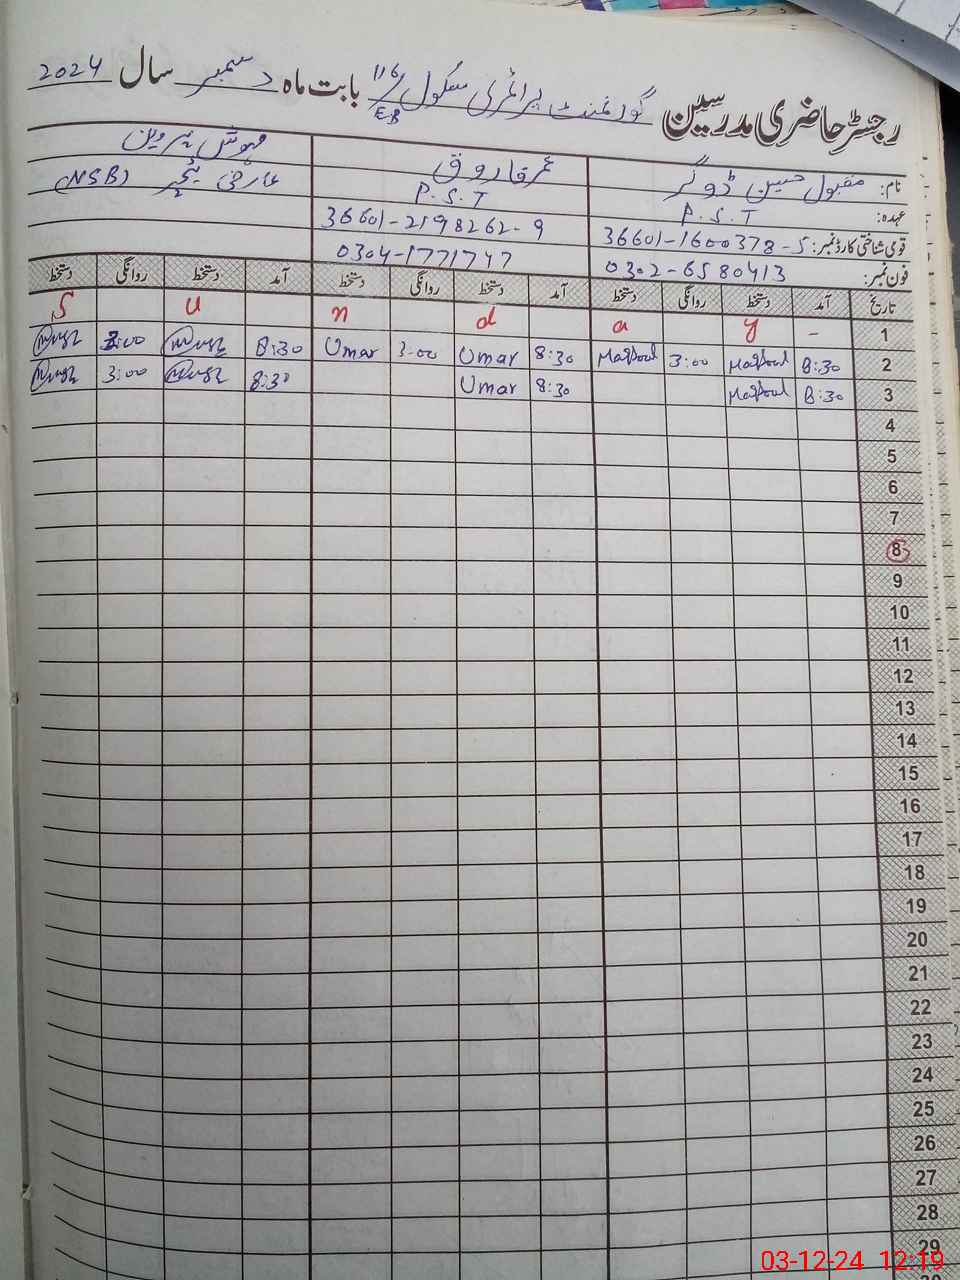 رجسٹر حاضری مدرسین گورنمنٹ پرائمری سکول 116/EB بابت ماہ دسمبر سال 2024
نام: مقبول حسین ڈوگر عمر فاروق مہوش پروین
عہدہ: P.S.T P.S.T عارضی ٹیچر (NSB)
قومی شناختی کارڈ نمبر: 36601-1600378-5 36601-2198262-9
فون نمبر: 0302-6580413 0304-1771747
تاریخ آمد دستخط روانگی دستخط آمد دستخط روانگی دستخط آمد دستخط روانگی دستخط
1 S u n d a y -
2 8:30 Maqbool 3:00 Maqbool 8:30 Umar 3:00 Umar 8:30 3:00
3 8:30 Maqbool 8:30 Umar 8:30 3:00
4
5
6
7
8
9
10
11
12
13
14
15
16
17
18
19
20
21
22
23
24
25
26
27
28
29
03-12-24 12:19